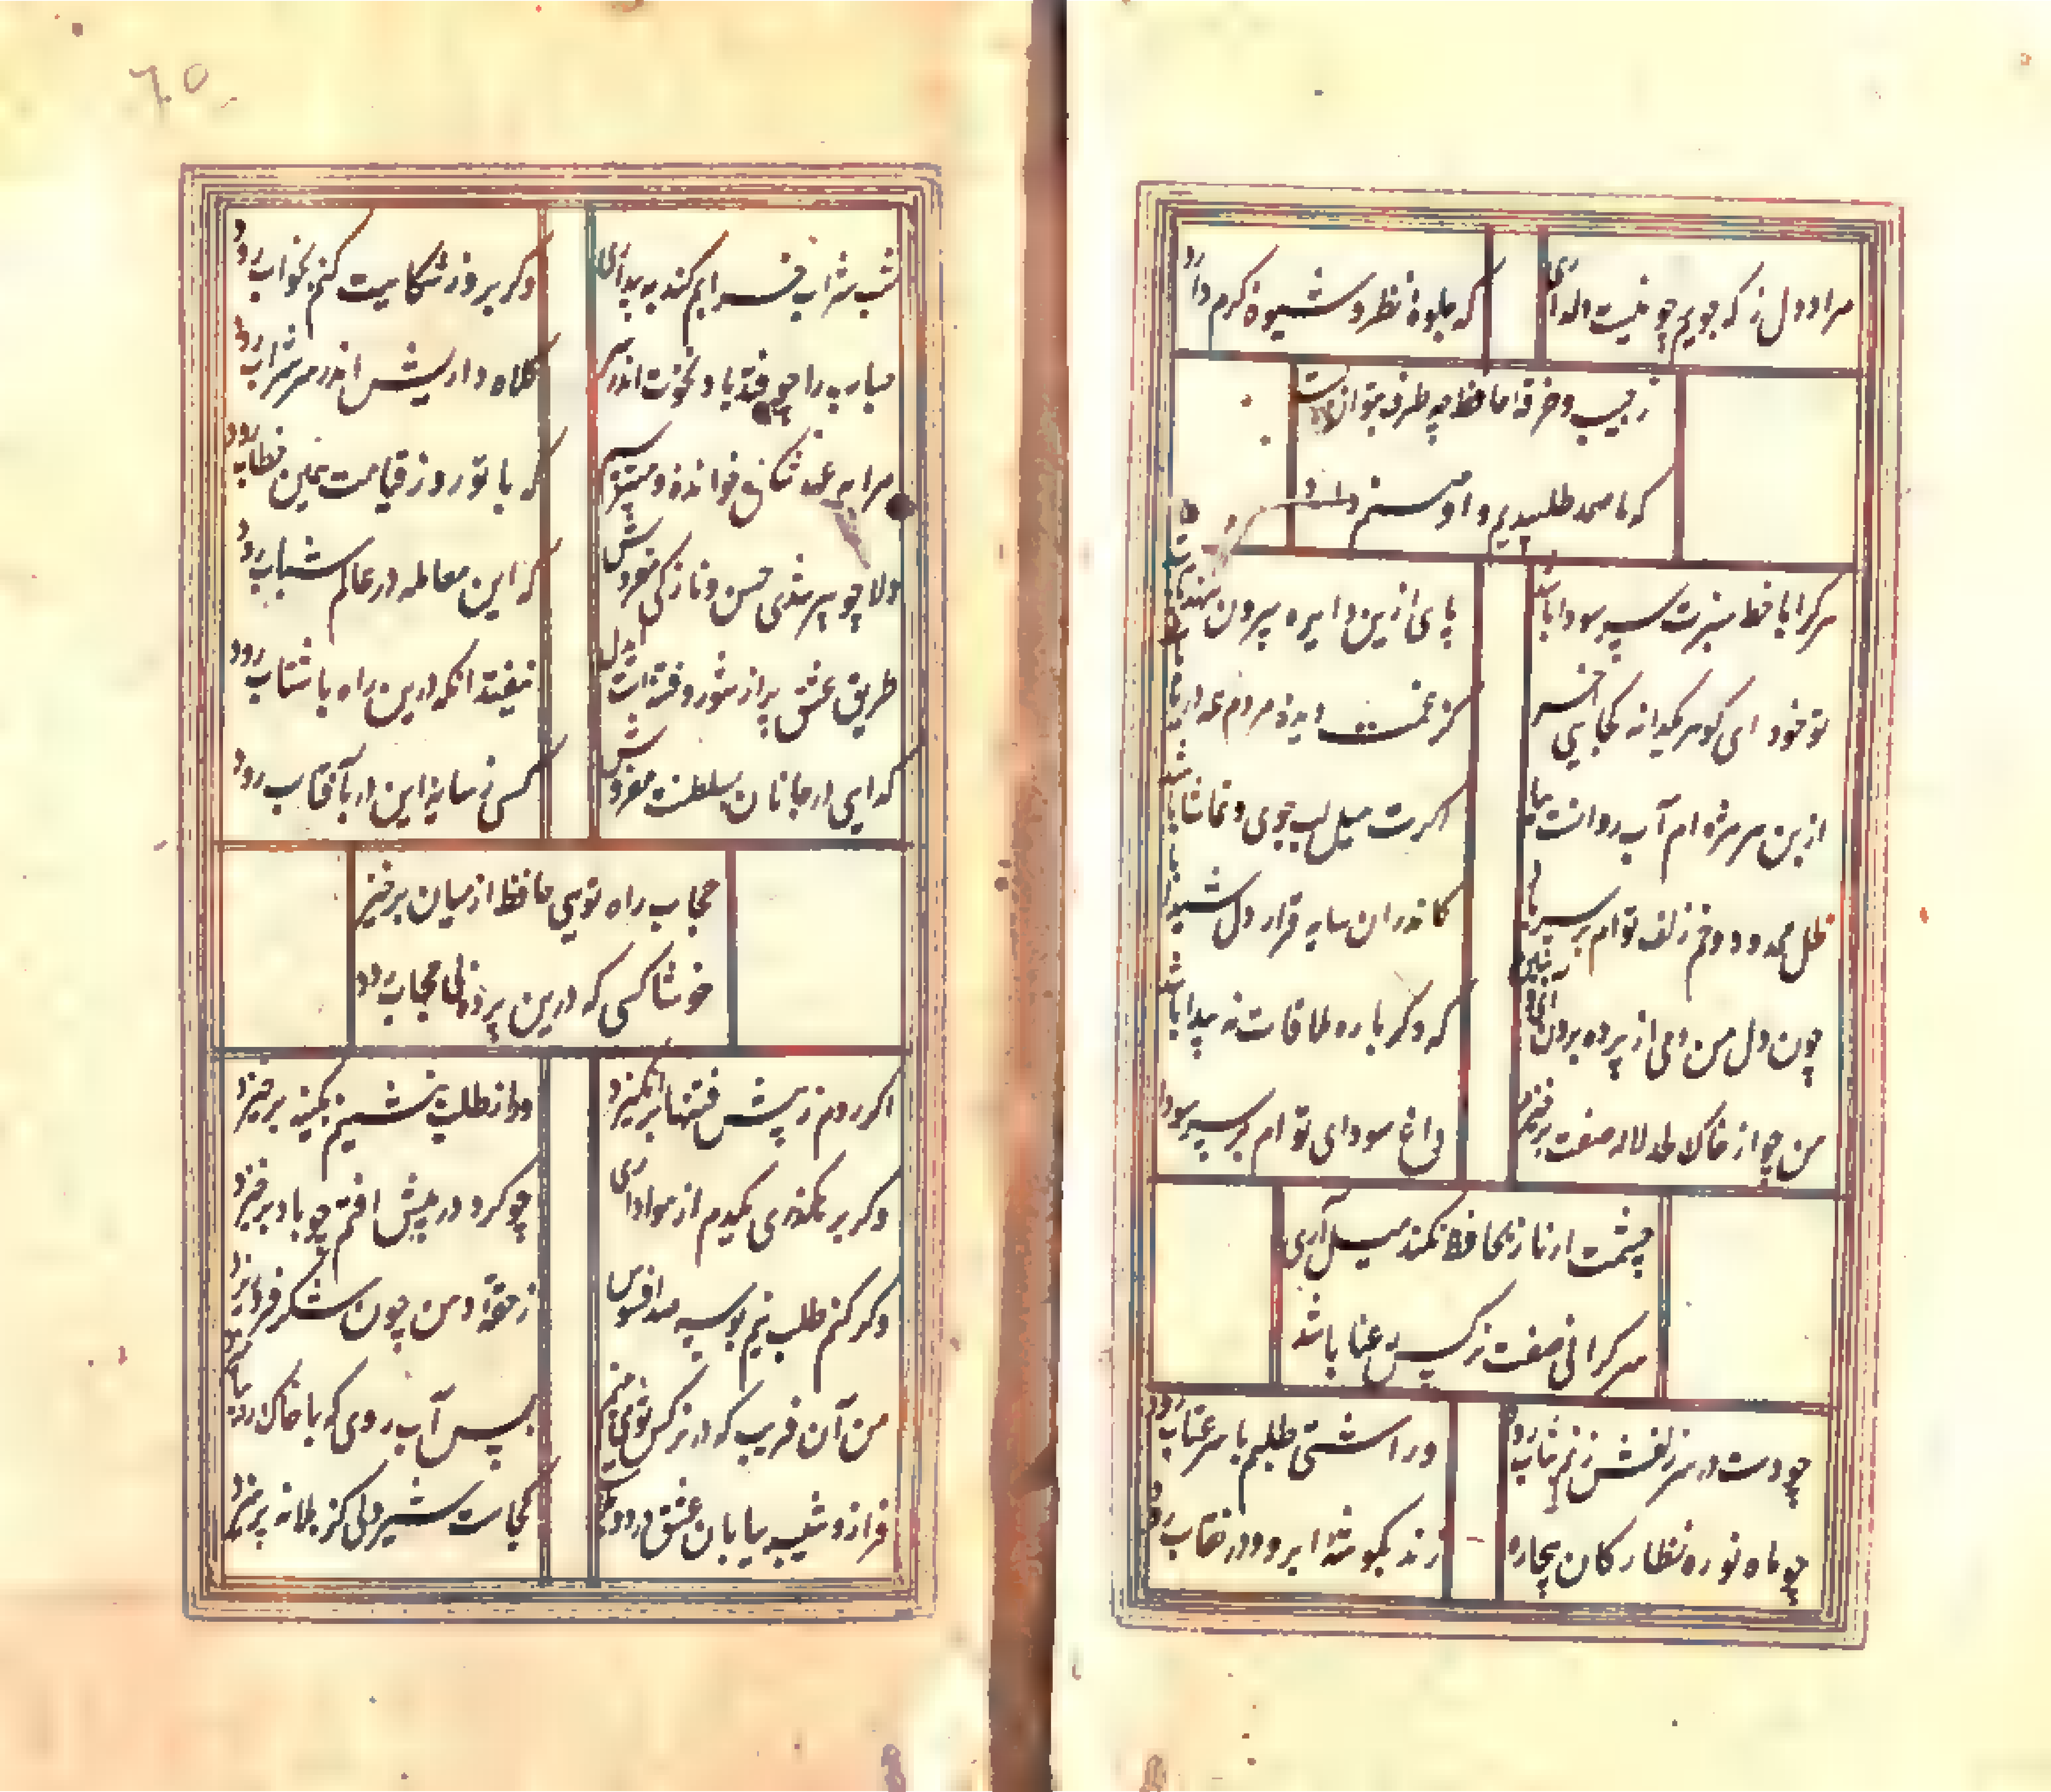 مراد دل ز که جویم چو نیست دلداری
که جلوه نظر و شیوه کرم دارد
ز جیب و خرقه حافظ چه طرف بتوان بست
که ما صمد طلبیدیم و او صنم دارد
هر کرا با خط سبزت سر سودا باشد
پای ازین دایره بیرون ننهد تا باشد
تو خود ای گوهر یکدانه کجایی آخر
کز غمت دیده مردم همه دریا باشد
از بن هر مژه ام آب روانست بیا
اگرت میل لب جوی و تماشا باشد
ظل ممدود خم زلف توام بر سر باد
کاندران سایه قرار دل شیدا باشد
چون دل من دمی از پرده برون آی و
که دگرباره ملاقات نه پیدا باشد
من چو از خاک لحد لاله صفت برخیزم
داغ سودای توام بر سر سویدا
چشمت از ناز بحافظ نکند میل آری
سرگرانی صفت نرگس رعنا باشد
چو دست در سر زلفش زنم بتاب رود
ور آشتی طلبم با سر عتاب رود
چو ماه نو ره نظارگان بیچاره
زند بگوشه ابرو و در نقاب رود
۶۵
شب شراب خرابم کند به بیداری
وگر بروز شکایت کنم بخواب رود
حباب را چو فتد باد نخوت اندر سر
کلاه داریش اندر سر شراب رود
مرا به عهد شکن خوانده و میترسم
که با تو روز قیامت همین خطاب رود
دلا چو پیر شدی حسن و نازکی مفروش
که این معامله در عالم شباب رود
طریق عشق پر از شور و فتنه است ایدل
نیفتد آنکه درین راه با شتاب رود
گدایی در جانان بسلطنت مفروش
کسی ز سایه این در بآفتاب رود
حجاب راه تویی حافظ از میان برخیز
خوشا کسی که درین پرده بی حجاب رود
اگر روم ز پیش فتنها برانگیزد
ور از طلب بنشینم بکینه برخیزد
وگر برهگذری یکدم از هواداری
چو گرد در پیش افتم چو باد برخیزد
وگر کنم طلب نیم بوسه صد افسوس
ز حقه دهن چون شکر فرو ریزد
من آن فریب که در نرگس تو می بینم
بس آب روی که با خاک ره
فراز و شیب بیابان عشق
کجاست شیردلی کز بلا نه پرهیزد